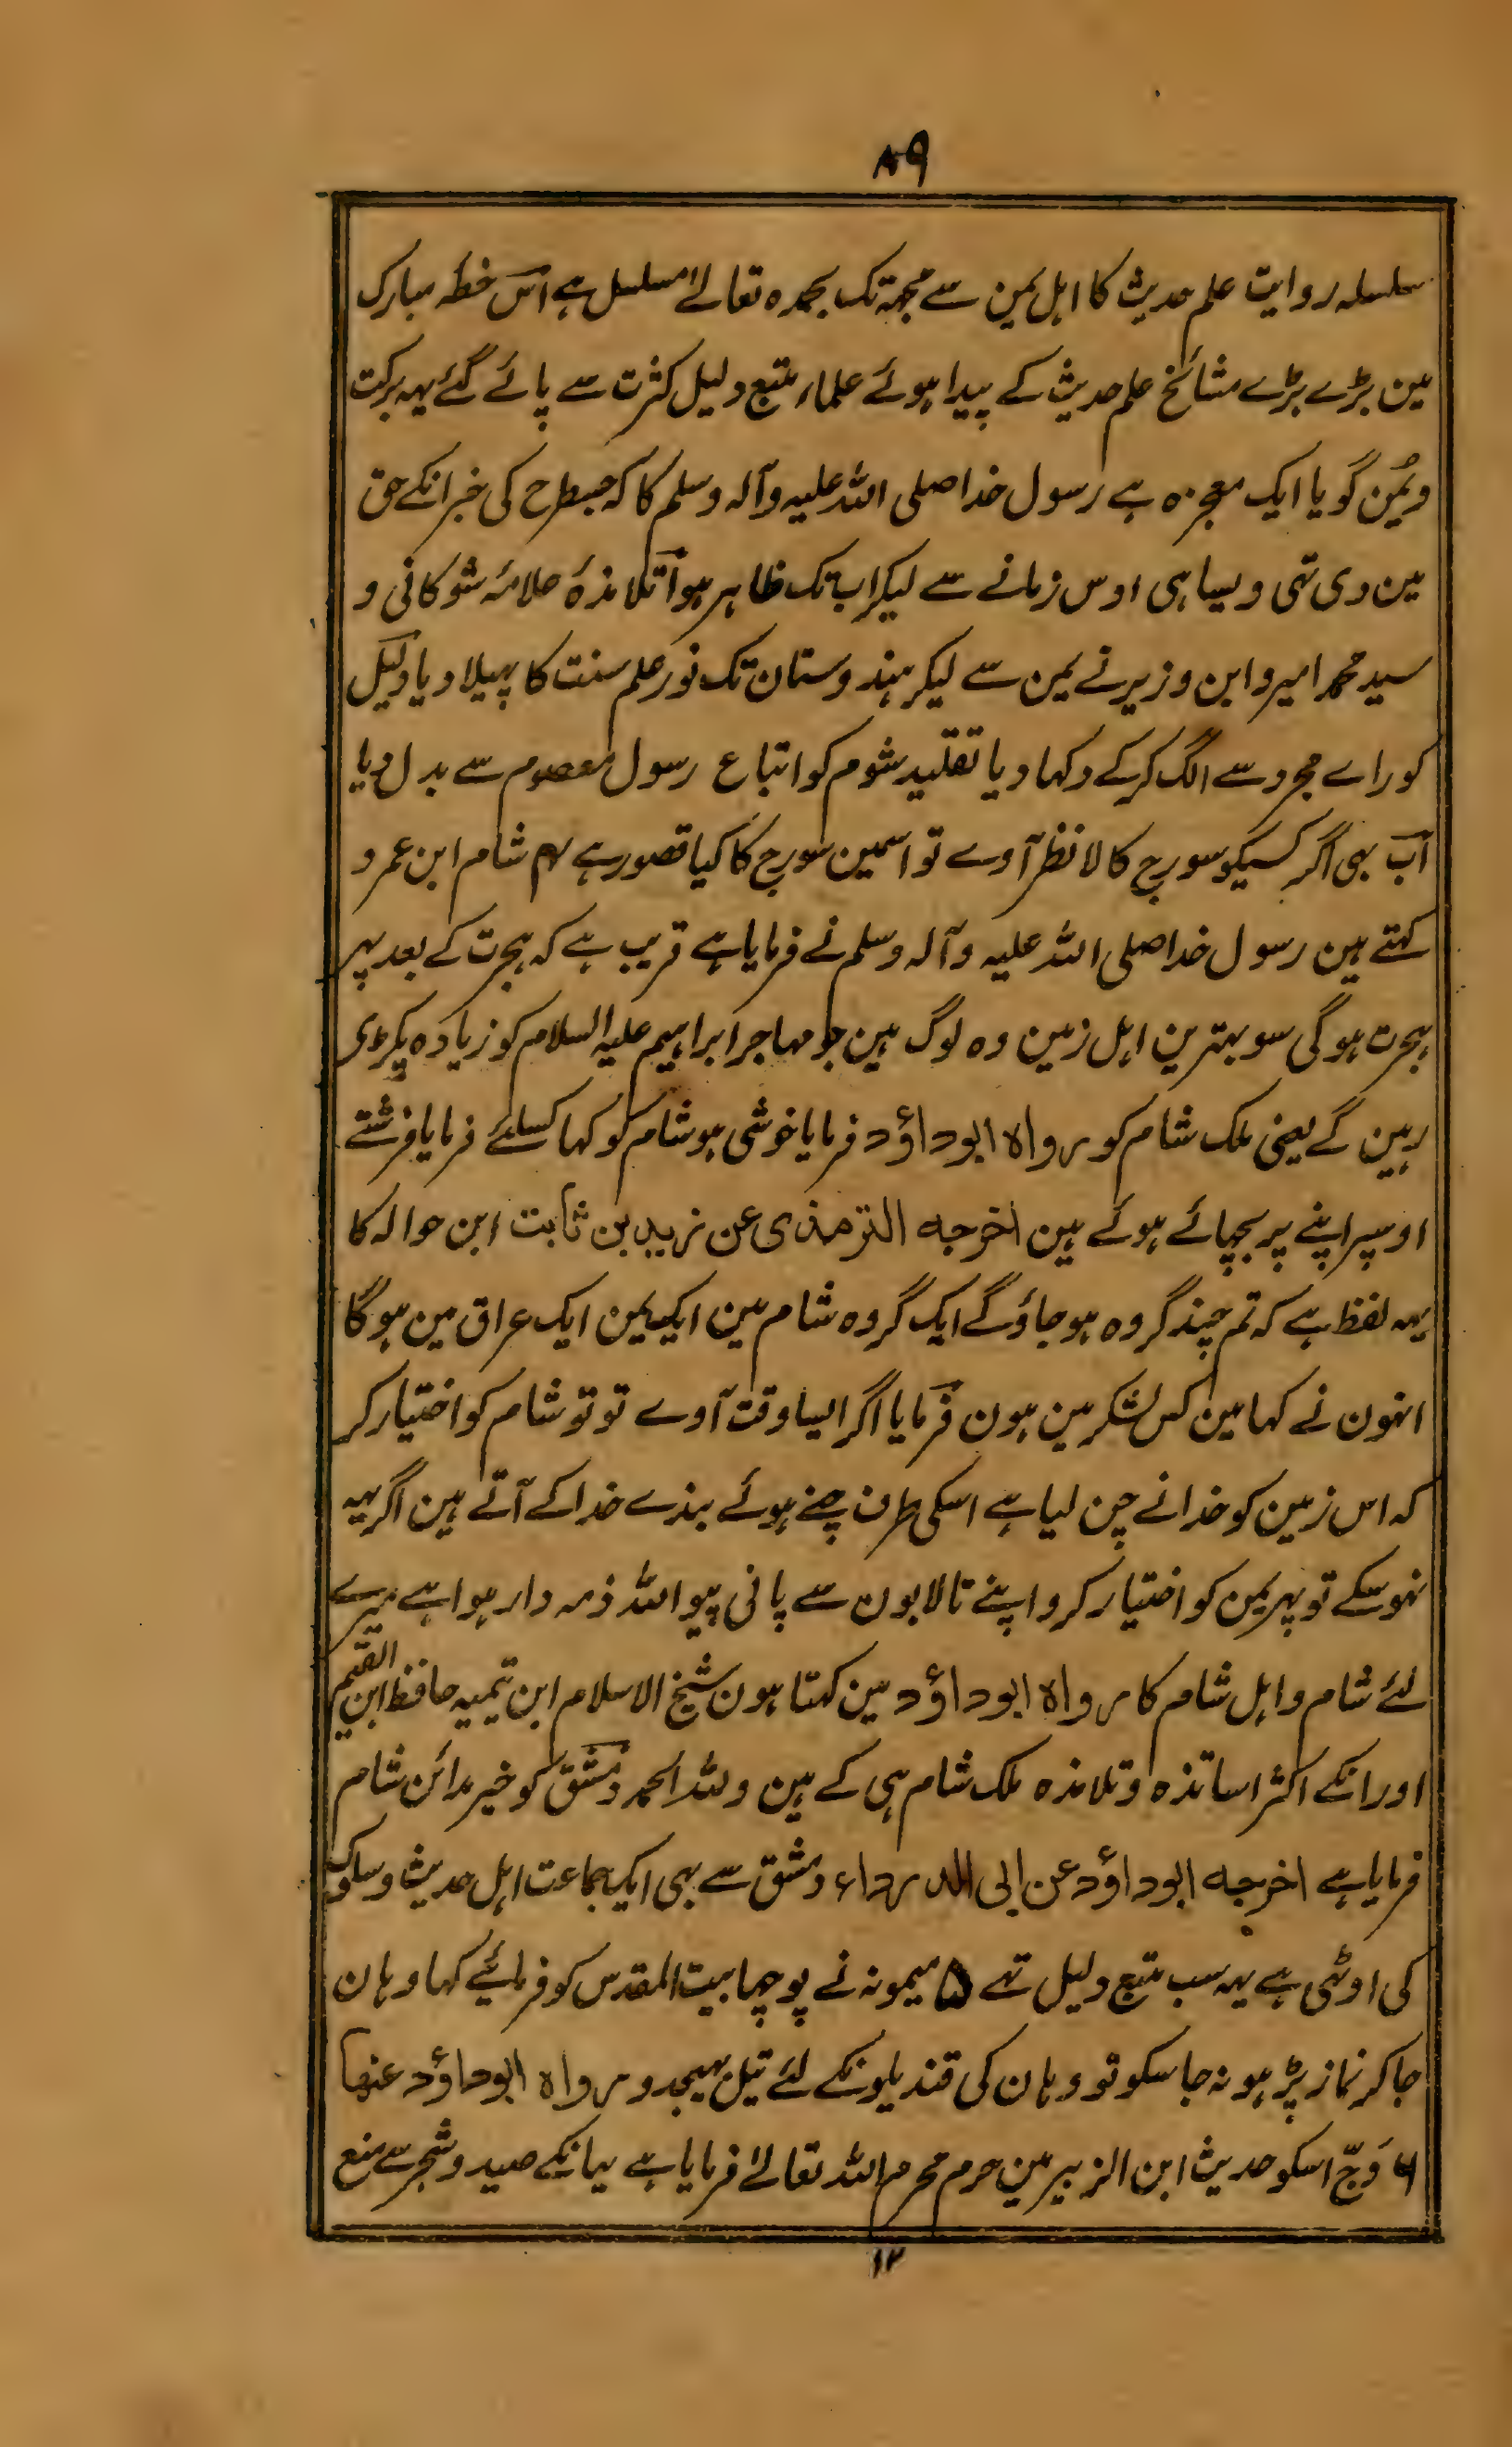 ۸۹
سلسلہ روایت علم حدیث کا اہل یمن سے مجہتک بحمدہ تعالےٰ مسلسل ہے اس خطہ مبارک
مین بڑے بڑے مشائخ علم حدیث کے پیدا ہوئے علماء متبع دلیل کثرت سے پائے گئے یہہ برکت
ویُمن گویا ایک معجزہ ہے رسول خدا صلی اللہ علیہ وآلہ وسلم کا کہ جسطرح کی خبر انکے حق
مین دی تہی ویسا ہی اوس زمانے سے لیکر ابتک ظاہر ہوا تلامذۂ علامۂ شوکانی و
سید محمد امیر و ابن وزیر نے یمن سے لیکر ہندوستان تک نور علم سنت کا پہیلا دیا دلیل
کو راے مجرد سے الگ کرکے دکہا دیا تقلید شوم کو اتباع رسول معصوم سے بدل دیا
اب بہی اگر کسیکو سورج کالا نظر آوے تو اسمین سورج کا کیا قصور ہے ۴ شام ابن عمرو
کہتے ہین رسول خدا صلی اللہ علیہ وآلہ وسلم نے فرمایا ہے قریب ہے کہ ہجرت کے بعد پہر
ہجرت ہوگی سو بہترین اہل زمین وہ لوگ ہین جو مہاجر ابراہیم علیہ السلام کو زیادہ پکڑی
رہین گے یعنی ملک شام کو رواہ ابوداؤد فرمایا خوشی ہو شام کو کہا کسلئے فرمایا فرشتے
اوسپر اپنے پر بچہائے ہوئے ہین اخرجہ الترمذی عن زید بن ثابت ابن حوالہ کا
یہہ لفظ ہے کہ تم چند گروہ ہوجاؤگے ایک گروہ شام مین ایک یمن ایک عراق مین ہوگا
انہون نے کہا مین کس لشکر مین ہون فرمایا اگر ایسا وقت آوے تو تو شام کو اختیار کر
کہ اس زمین کو خدا نے چن لیا ہے اسکی طرف چنے ہوئے بندے خدا کے آتے ہین اگر یہہ
نہوسکے تو پہر یمن کو اختیار کرو اپنے تالابون سے پانی پیو اللہ ذمہ دار ہوا ہے میرے
لئے شام و اہل شام کا رواہ ابوداؤد مین کہتا ہون شیخ الاسلام ابن تیمیہ حافظ ابن القیم
اور انکے اکثر اساتذہ و تلامذہ ملک شام ہی کے ہین وللہ الحمد دمشق کو خیر مدائن شام
فرمایا ہے اخرجہ ابوداؤد عن ابی الدرداء دمشق سے بہی ایک جماعت اہل حدیث وسلوک
کی اوٹہی ہے یہہ سب متبع دلیل تہے ۵ میمونہ نے پوچہا بیت المقدس کو فرمائیے کہا وہان
جاکر نماز پڑہو نہ جاسکو تو وہان کی قندیلونکے لئے تیل بہیجدو رواہ ابوداؤد عنہا
۶ وَجّ اسکو حدیث ابن الزبیر مین حرم محرم اللہ تعالےٰ فرمایا ہے یہانکے صید و شجر سے منع
۱۲